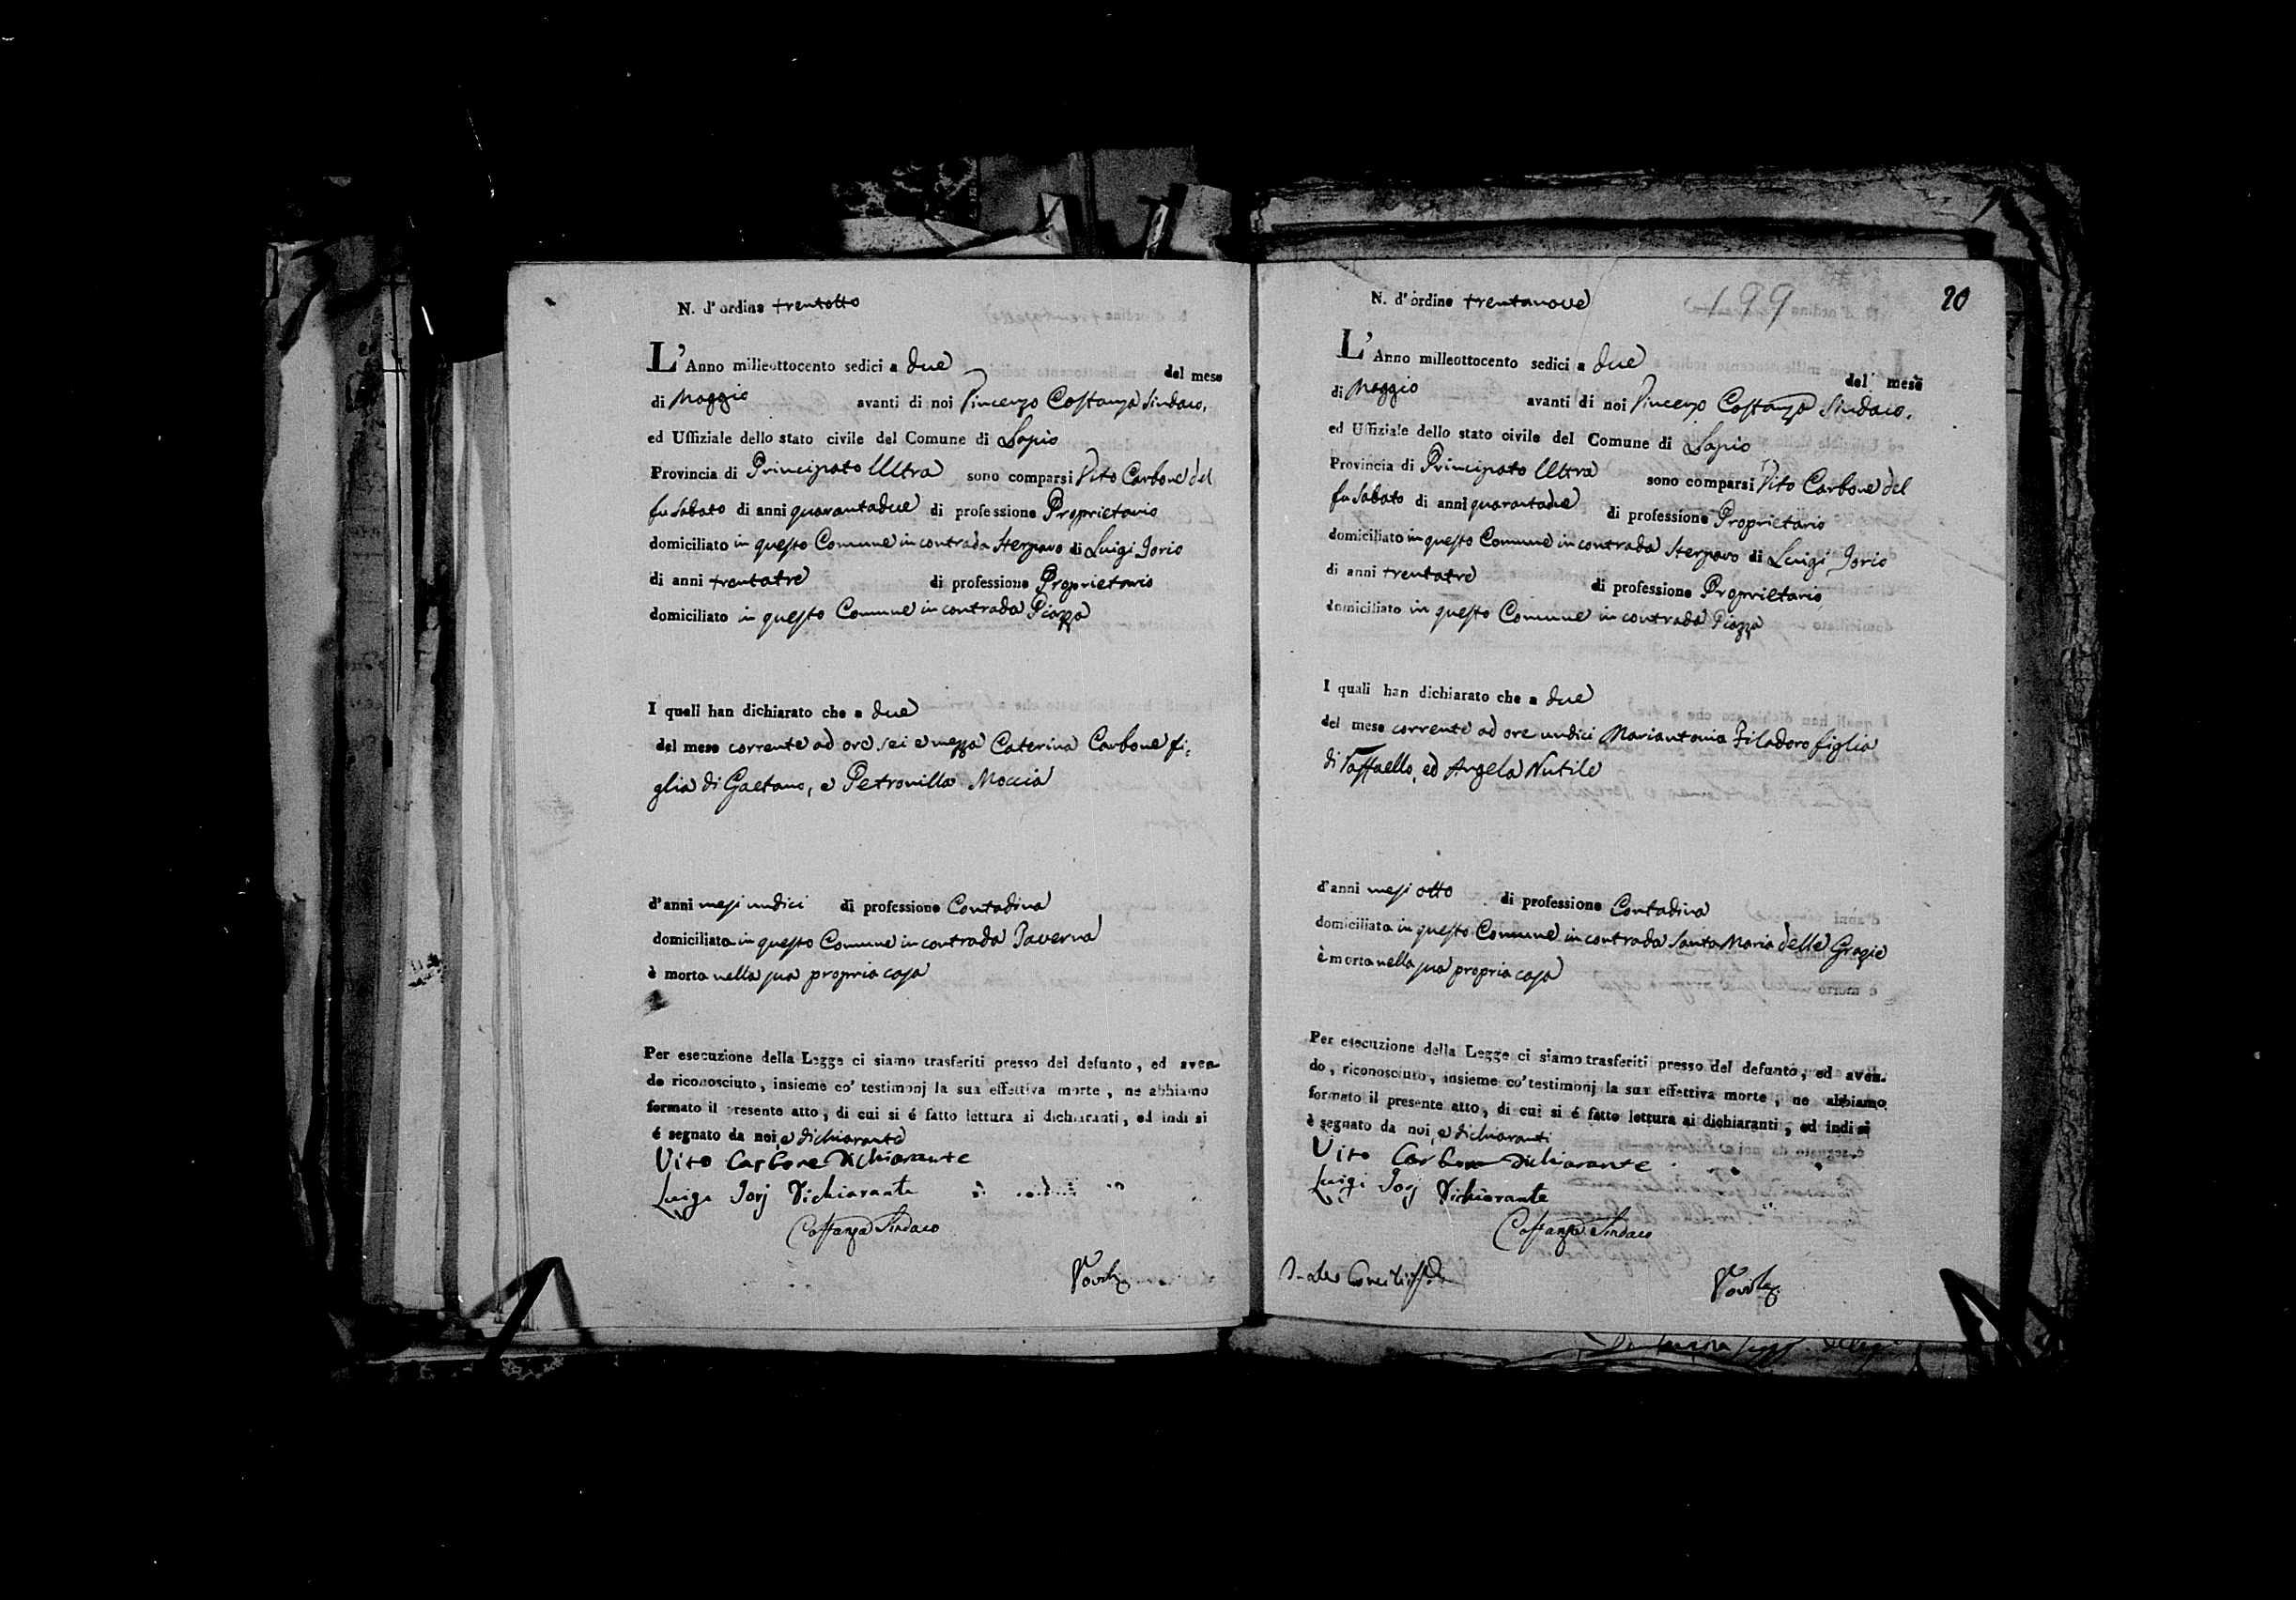 N. d'ordine trentotto
L'Anno milleottocento sedici a due del mese
di Maggio avanti di noi Vincenzo Costanza Sindaco,
ed Uffiziale dello stato civile del Comune di Lapio
Provincia di Principato Ultra sono comparsi Vito Carbone del
fu Sabato di anni quarantadue di professione Proprietario
domiciliato in questo Comune in contrada Sterparo di Luigi Iorio
di anni trentatre di professione Proprietario
domiciliato in questo Comune in contrada Piazza
I quali han dichiarato che a due
del mese corrente ad ore sei e mezza Caterina Carbone fi:
glia di Gaetano, e Petronilla Moccia
d'anni mesi undici di professione Contadina
domiciliata in questo Comune in contrada Taverna
è morta nella sua propria casa
Per esecuzione della Legge ci siamo trasferiti presso del defunto, ed aven-
do riconosciuto, insieme co' testimonj la sua effettiva morte, ne abbiamo
formato il presente atto, di cui si é fatto lettura ai dichiaranti, ed indi si
é segnato da noi, e dichiarante
Vito Carbone Dichiarante
Luigi Iorj Dichiarante
Costanza Sindaco
N. d'ordine trentanove
199
20
L'Anno milleottocento sedici a due del mese
di Maggio avanti di noi Vincenzo Costanza Sindaco.
ed Uffiziale dello stato civile del Comune di Lapio
Provincia di Principato Ultra sono comparsi Vito Carbone del
fu Sabato di anni quarantadue di professione Proprietario
domiciliato in questo Comune in contrada Sterparo di Luigi Iorio
di anni trentatre di professione Proprietario
domiciliato in questo Comune in contrada Piazza
I quali han dichiarato che a due
del mese corrente ad ore undici Mariantonia Filadoro figlia
di Raffaello, ed Angela Nutile
d'anni mesi otto di professione Contadina
domiciliata in questo Comune in contrada Santa Maria delle Grazie
è morta nella sua propria casa
Per esecuzione della Legge ci siamo trasferiti presso del defunto, ed aven-
do, riconosciuto, insieme co' testimonj la sua effettiva morte, ne abbiamo
formato il presente atto, di cui si é fatto lettura ai dichiaranti, ed indi si
è segnato da noi, e dichiaranti
Vito Carbone Dichiarante
Luigi Iorj Dichiarante
Costanza Sindaco